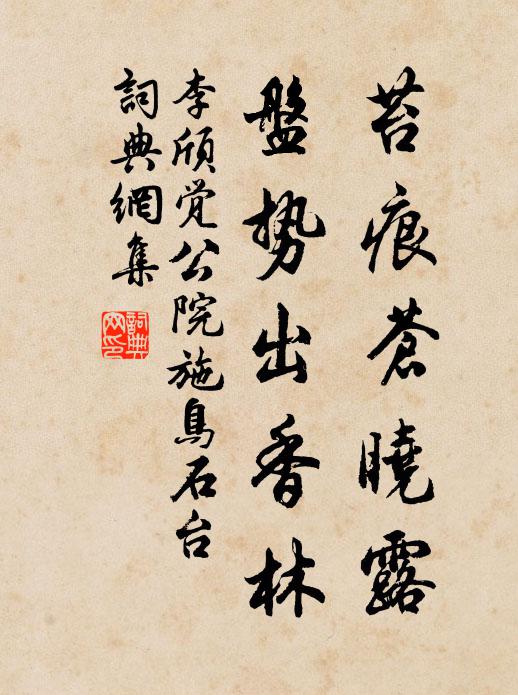 苔痕蒼曉露
盤势出香林
李頎觉公院施鳥石台
詞典網集
詞典